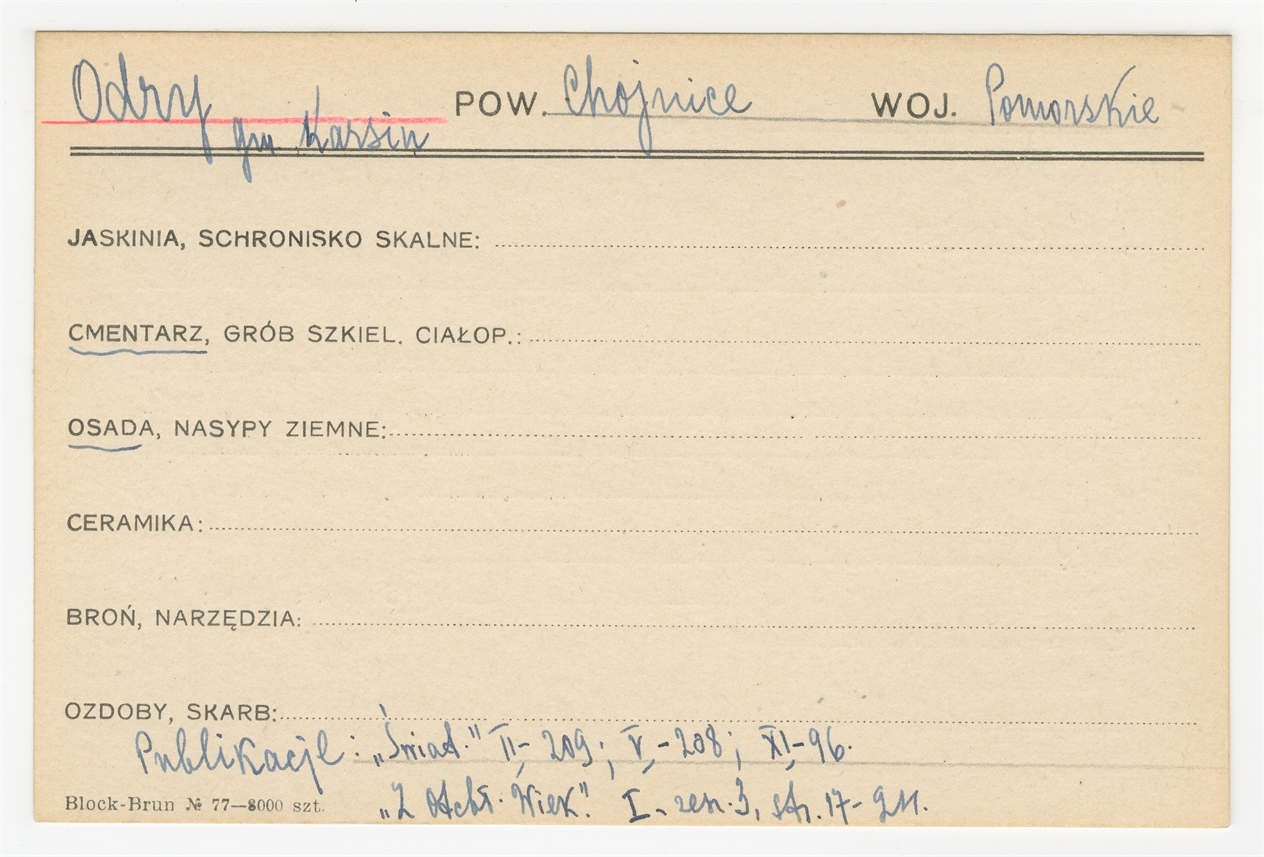 Odry POW. Chojnice WOJ. Pomorskie
gm. Karsin
JASKINIA, SCHRONISKO SKALNE:
CMENTARZ, GRÓB SZKIEL. CIAŁOP.:
OSADA, NASYPY ZIEMNE:
CERAMIKA:
BROŃ, NARZĘDZIA:
OZDOBY, SKARB:
Publikacje: „Świat." II-209; V,-208; XI,-96.
„Z Otchł. Wiek". I- zesz. 3, str. 17-
Block-Brun № 77—8000 szt.